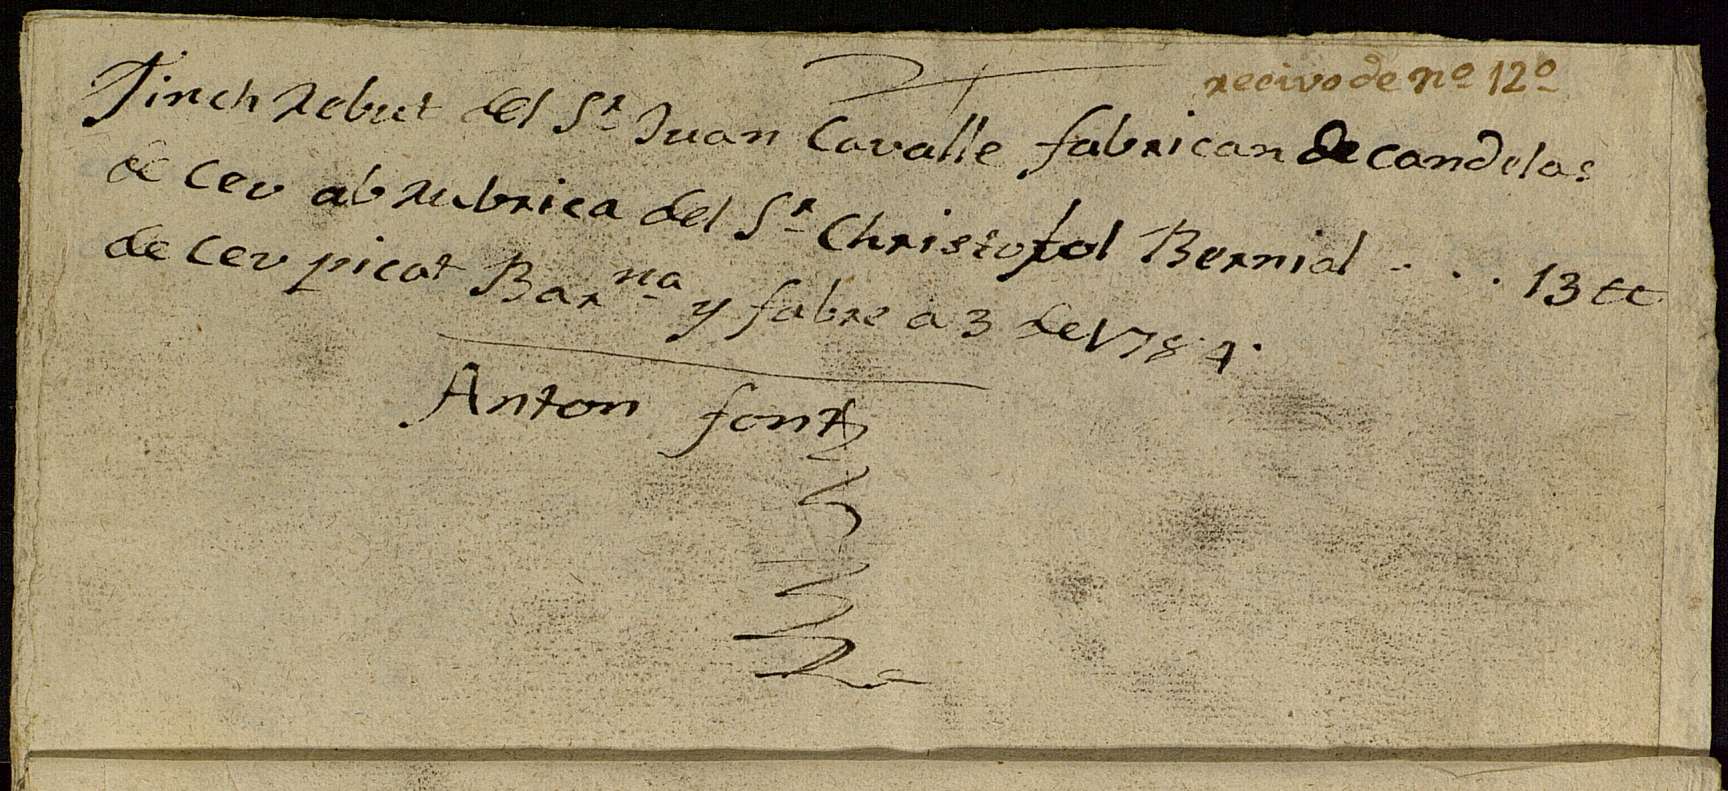 recivo de nº 12º
Tinch Rebut del Sr Juan Cavalle fabrican de candelas
de cev ab rubrica del Sr Christofol Bernial . . . 13 tt
de cev picat Barna y fabre a 3 de 1784.
Anton font